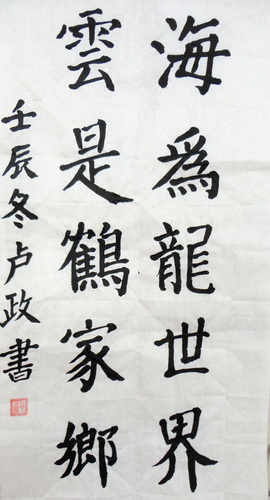 海為龍世界
雲是鶴家鄉
壬辰冬卢政書